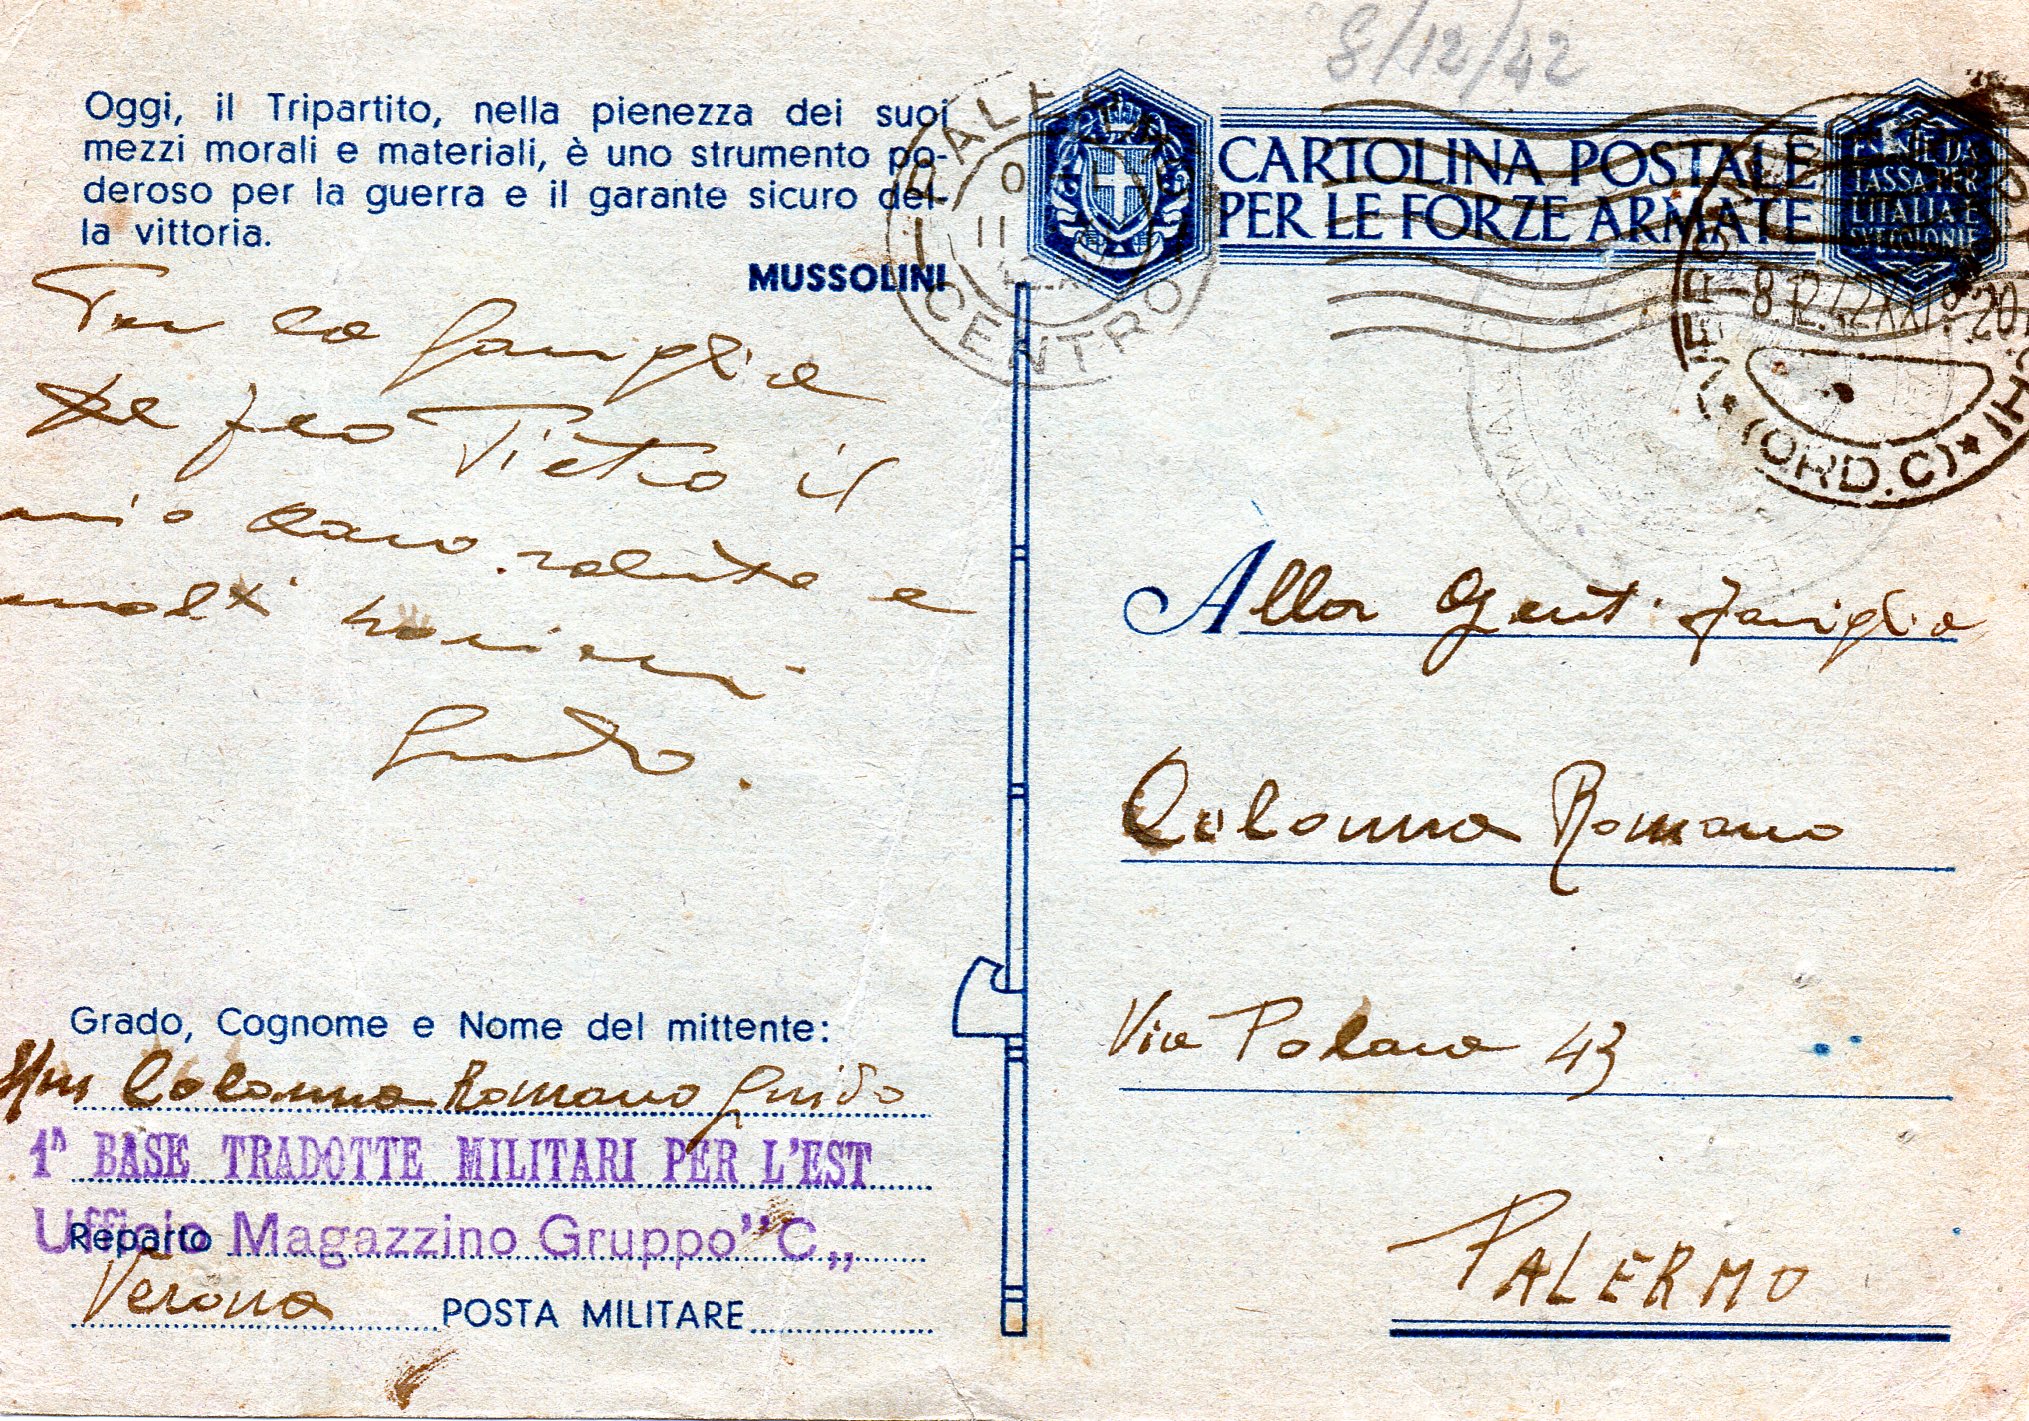 8/12/42
Oggi, il Tripartito, nella pienezza dei suoi
mezzi morali e materiali, è uno strumento po-
deroso per la guerra e il garante sicuro del-
la vittoria.
MUSSOLINI
CARTOLINA POSTALE
PER LE FORZE ARMATE
PALERMO
CENTRO
11
8.12.42 XXI
20
(ORD.C)
la famiglia
De feo Pietro il
mio caro saluto e
molti
Guido.
Alla Gent. famiglia
Colonna Romano
Via Polara 43
PALERMO
Grado, Cognome e Nome del mittente:
Colonna Romano Guido
1ª BASE TRADOTTE MILITARI PER L'EST
Ufficio Magazzino Gruppo "C„
Reparto
Verona POSTA MILITARE